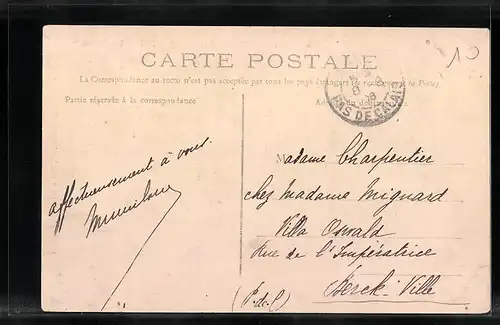 10
CARTE POSTALE
La Correspondance au recto n'est pas acceptée par tous les pays étrangers
Partie réservée à la correspondance
PAS DE CALAIS
affectueusement à vous.
Madame Charpentier
chez Madame Mignard
Villa Oswald
Rue de l'Impératrice
Berck-Ville
(P-de-C)